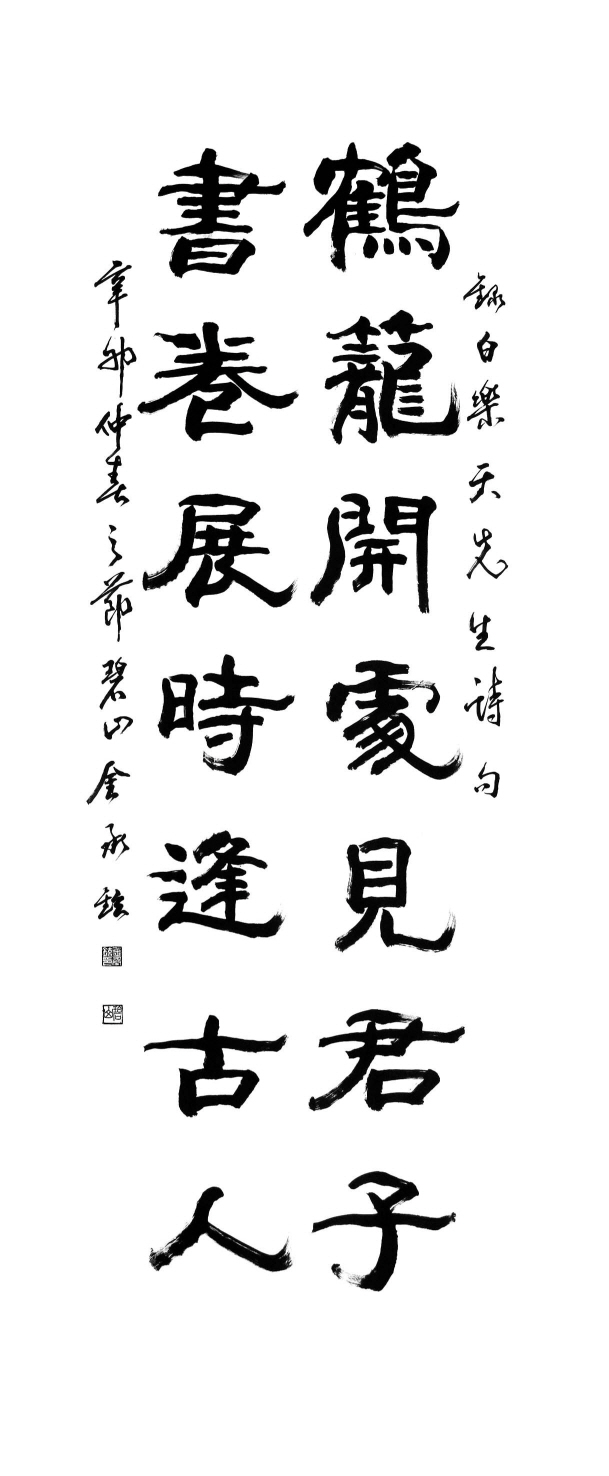 錄白樂天先生詩句
鶴籠開處見君子
書卷展時逢古人
辛卯仲春之節碧山金承